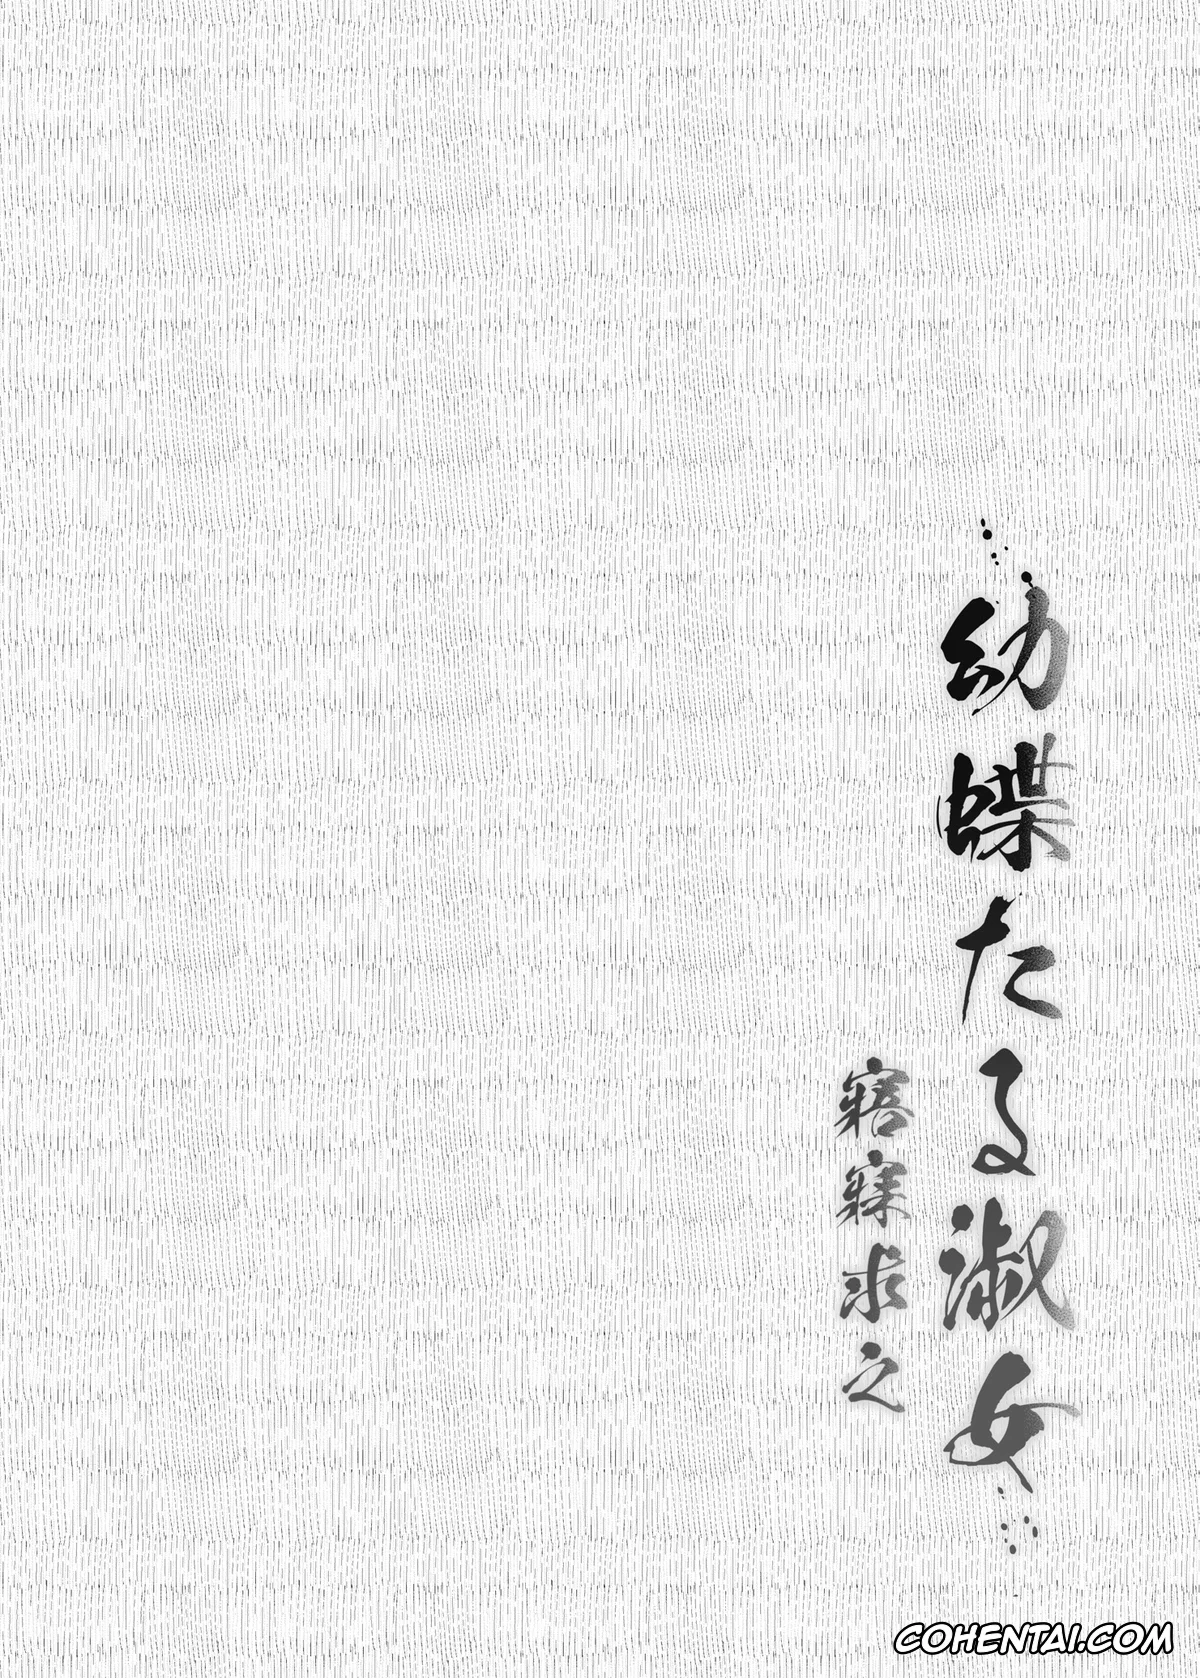 幼蝶たる淑女
寤寐求之
COHENTAI.COM